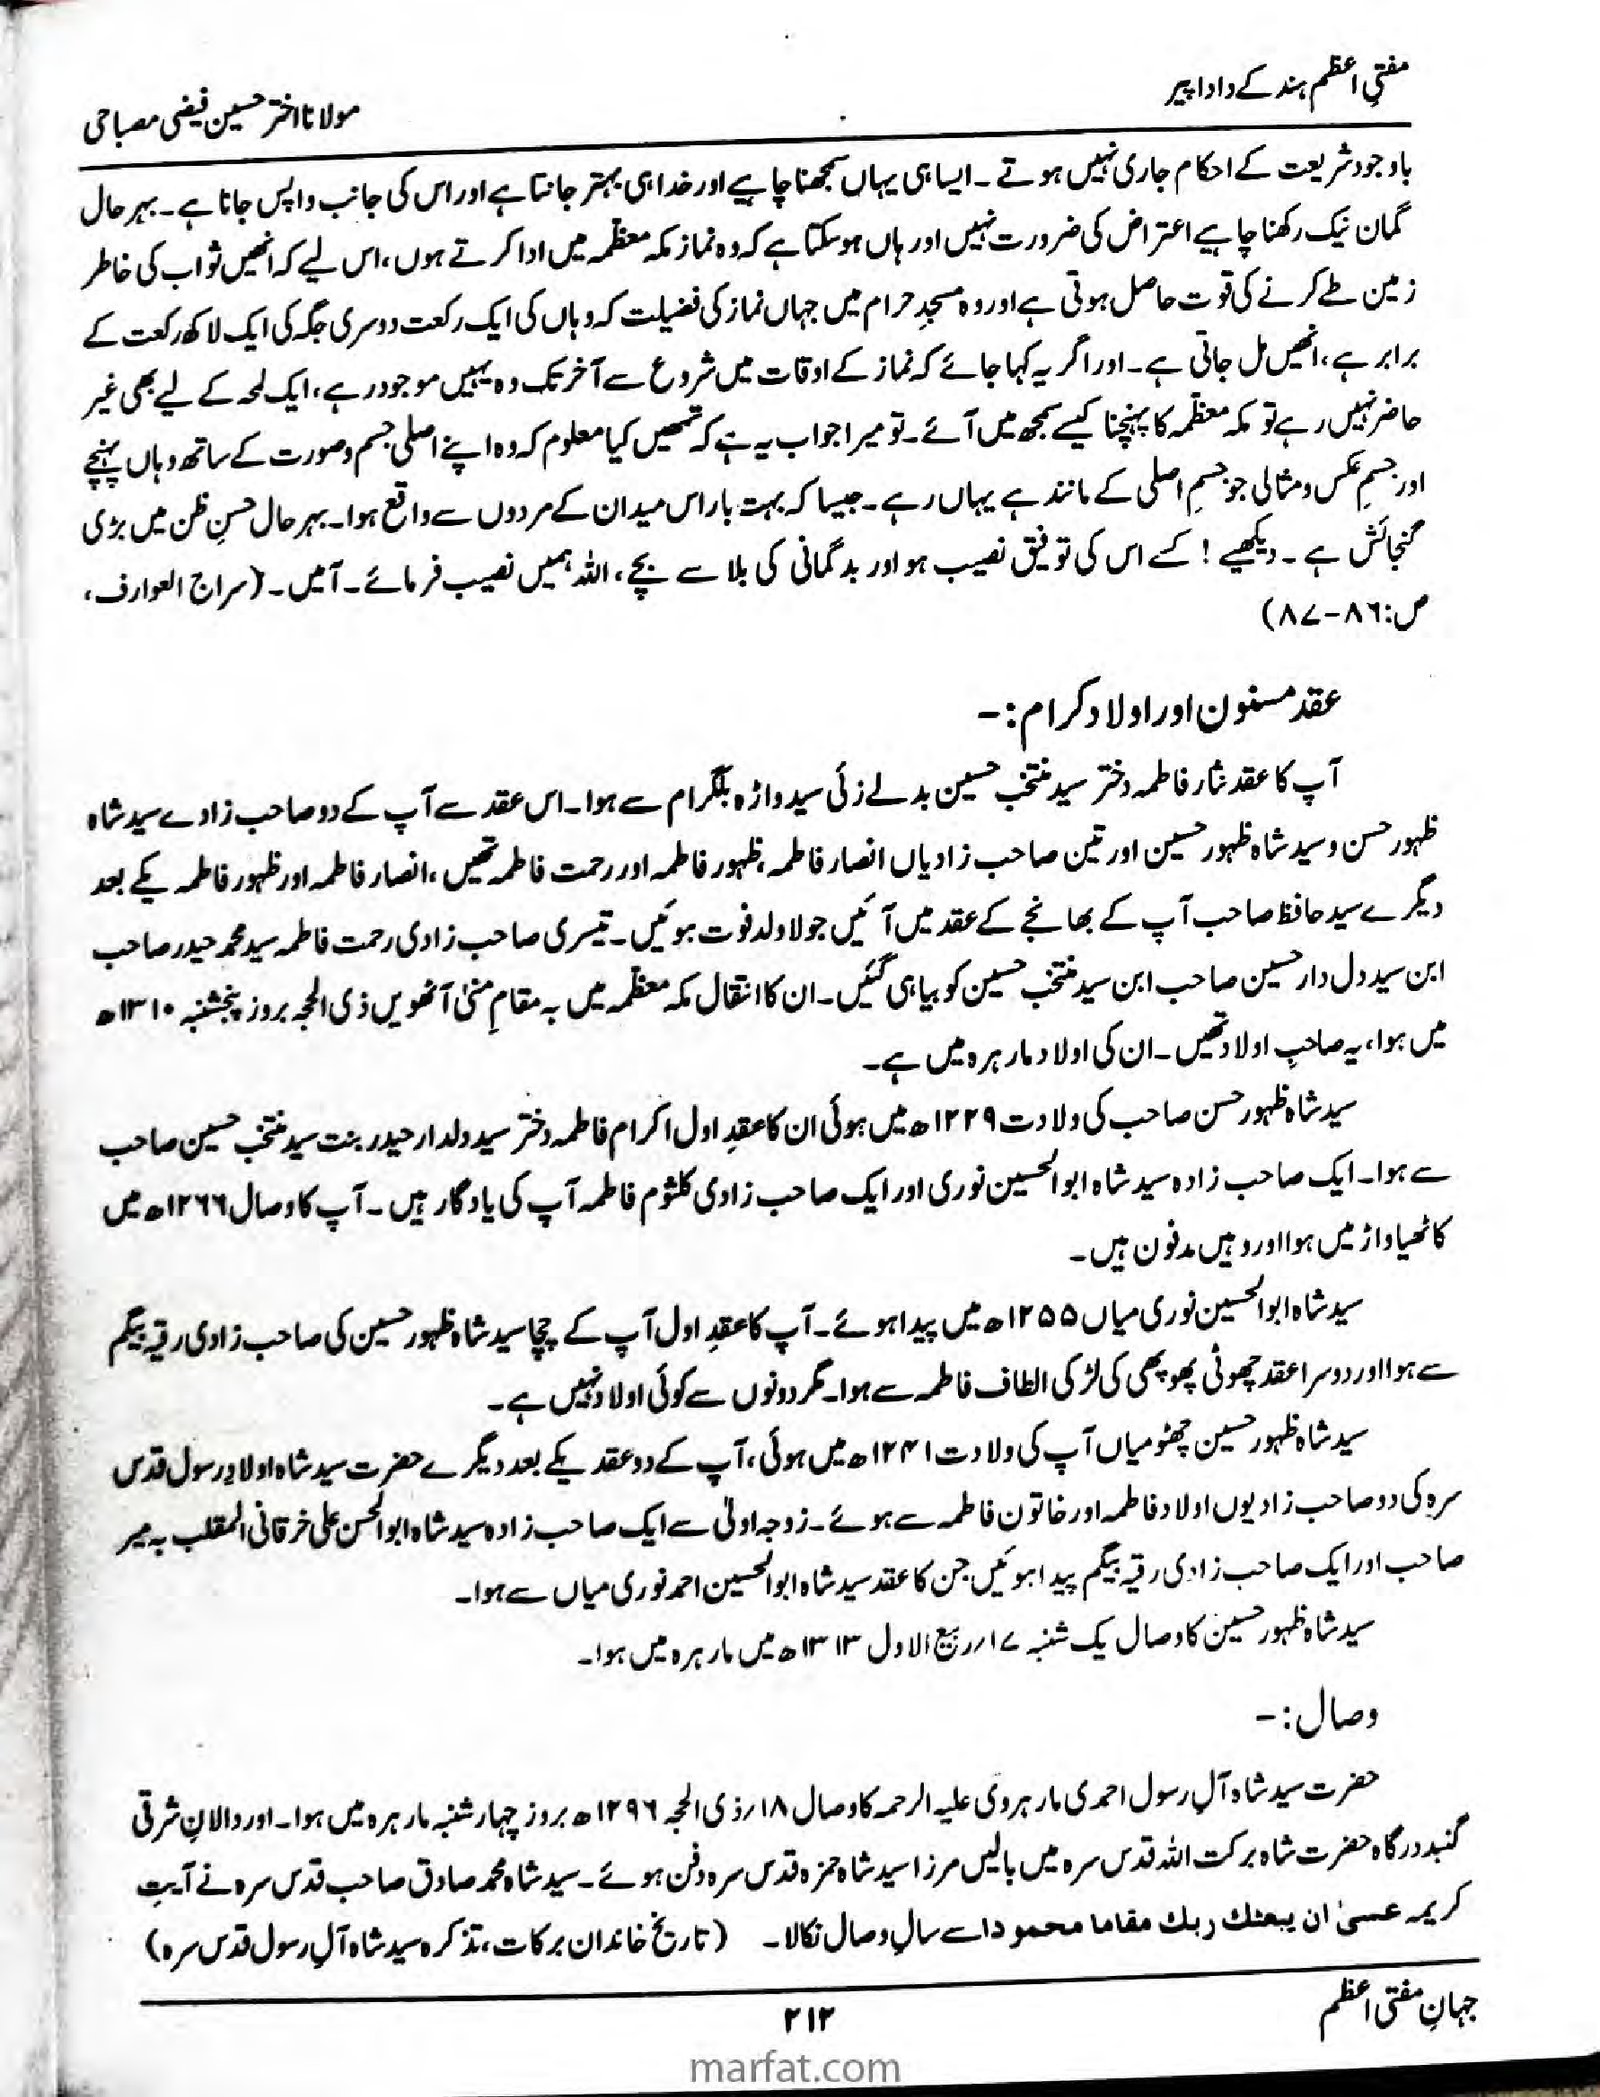 مفتیِ اعظم ہند کے دادا پیر
مولانا اختر حسین فیضی مصباحی
باوجود شریعت کے احکام جاری نہیں ہوتے ۔ ایسا ہی یہاں سمجھنا چاہیے اور خدا ہی بہتر جانتا ہے اور اس کی جانب واپس جانا ہے ۔ بہر حال
گمان نیک رکھنا چاہیے اعتراض کی ضرورت نہیں اور ہاں ہو سکتا ہے کہ وہ نماز مکہ معظّمہ میں ادا کرتے ہوں، اس لیے کہ انھیں ثواب کی خاطر
زمین طے کرنے کی قوت حاصل ہوتی ہے اور وہ مسجدِ حرام میں جہاں نماز کی فضیلت کہ وہاں کی ایک رکعت دوسری جگہ کی ایک لاکھ رکعت کے
برابر ہے، انھیں مل جاتی ہے ۔ اور اگر یہ کہا جائے کہ نماز کے اوقات میں شروع سے آخر تک وہ یہیں موجود رہے، ایک لمحہ کے لیے بھی غیر
حاضر نہیں رہے تو مکہ معظّمہ کا پہنچنا کیسے سمجھ میں آئے ۔ تو میرا جواب یہ ہے کہ تمھیں کیا معلوم کہ وہ اپنے اصلی جسم و صورت کے ساتھ وہاں پہنچے
اور جسمِ عکس و مثالی جو جسمِ اصلی کے مانند ہے یہاں رہے ۔ جیسا کہ بہت بار اس میدان کے مردوں سے واقع ہوا ۔ بہر حال حسنِ ظن میں بڑی
گنجائش ہے ۔ دیکھیے ! کسے اس کی توفیق نصیب ہو اور بدگمانی کی بلا سے بچے، اللہ ہمیں نصیب فرمائے ۔ آمیں ۔ (سراج العوارف،
ص: ۸۶-۸۷)
عقد مسنون اور اولاد کرام :-
آپ کا عقد نثار فاطمہ دختر سید منتخب حسین بدلے زئی سید واڑہ بلگرام سے ہوا ۔ اس عقد سے آپ کے دو صاحب زادے سید شاہ
ظہور حسن و سید شاہ ظہور حسین اور تین صاحب زادیاں انصار فاطمہ، ظہور فاطمہ اور رحمت فاطمہ تھیں، انصار فاطمہ اور ظہور فاطمہ یکے بعد
دیگرے سید حافظ صاحب آپ کے بھانجے کے عقد میں آئیں جو لا ولد فوت ہوئیں ۔ تیسری صاحب زادی رحمت فاطمہ سید محمد حیدر صاحب
ابن سید دل دار حسین صاحب ابن سید منتخب حسین کو بیاہی گئیں ۔ ان کا انتقال مکہ معظّمہ میں بہ مقامِ منیٰ آٹھویں ذی الحجہ بروز پنجشنبہ ۱۳۱۰ھ
میں ہوا، یہ صاحبِ اولاد تھیں ۔ ان کی اولاد مارہرہ میں ہے ۔
سید شاہ ظہور حسن صاحب کی ولادت ۱۲۲۹ھ میں ہوئی ان کا عقدِ اول اکرام فاطمہ دختر سید دلدار حیدر بنت سید منتخب حسین صاحب
سے ہوا ۔ ایک صاحب زادہ سید شاہ ابوالحسین نوری اور ایک صاحب زادی کلثوم فاطمہ آپ کی یادگار ہیں ۔ آپ کا وصال ۱۲۶۶ھ میں
کاٹھیاواڑ میں ہوا اور وہیں مدفون ہیں ۔
سید شاہ ابوالحسین نوری میاں ۱۲۵۵ھ میں پیدا ہوئے ۔ آپ کا عقدِ اول آپ کے چچا سید شاہ ظہور حسین کی صاحب زادی رقیہ بیگم
سے ہوا اور دوسرا عقد چھوٹی پھوپھی کی لڑکی الطاف فاطمہ سے ہوا ۔ مگر دونوں سے کوئی اولاد نہیں ہے ۔
سید شاہ ظہور حسین چھٹو میاں آپ کی ولادت ۱۲۴۱ھ میں ہوئی، آپ کے دو عقد یکے بعد دیگرے حضرت سید شاہ اولادِ رسول قدس
سرہ کی دو صاحب زادیوں اولاد فاطمہ اور خاتون فاطمہ سے ہوئے ۔ زوجہ اولیٰ سے ایک صاحب زادہ سید شاہ ابوالحسن علی خرقانی المقلب بہ میر
صاحب اور ایک صاحب زادی رقیہ بیگم پیدا ہوئیں جن کا عقد سید شاہ ابوالحسین احمد نوری میاں سے ہوا ۔
سید شاہ ظہور حسین کا وصال یک شنبہ ۱۷؍ ربیع الاول ۱۳۱۳ھ میں مارہرہ میں ہوا ۔
وصال :-
حضرت سید شاہ آلِ رسول احمدی مارہروی علیہ الرحمہ کا وصال ۱۸؍ ذی الحجہ ۱۲۹۶ھ بروز چہار شنبہ مارہرہ میں ہوا ۔ اور دالانِ شرقی
گنبد درگاہ حضرت شاہ برکت اللہ قدس سرہ میں بالیں مرزا سید شاہ حمزہ قدس سرہ دفن ہوئے ۔ سید شاہ محمد صادق صاحب قدس سرہ نے آیتِ
کریمہ عسیٰ ان یبعثك ربك مقاما محمودا سے سالِ وصال نکالا ۔ (تاریخ خاندان برکات، تذکرہ سید شاہ آلِ رسول قدس سرہ)
جہانِ مفتی اعظم
۲۱۲
marfat.com